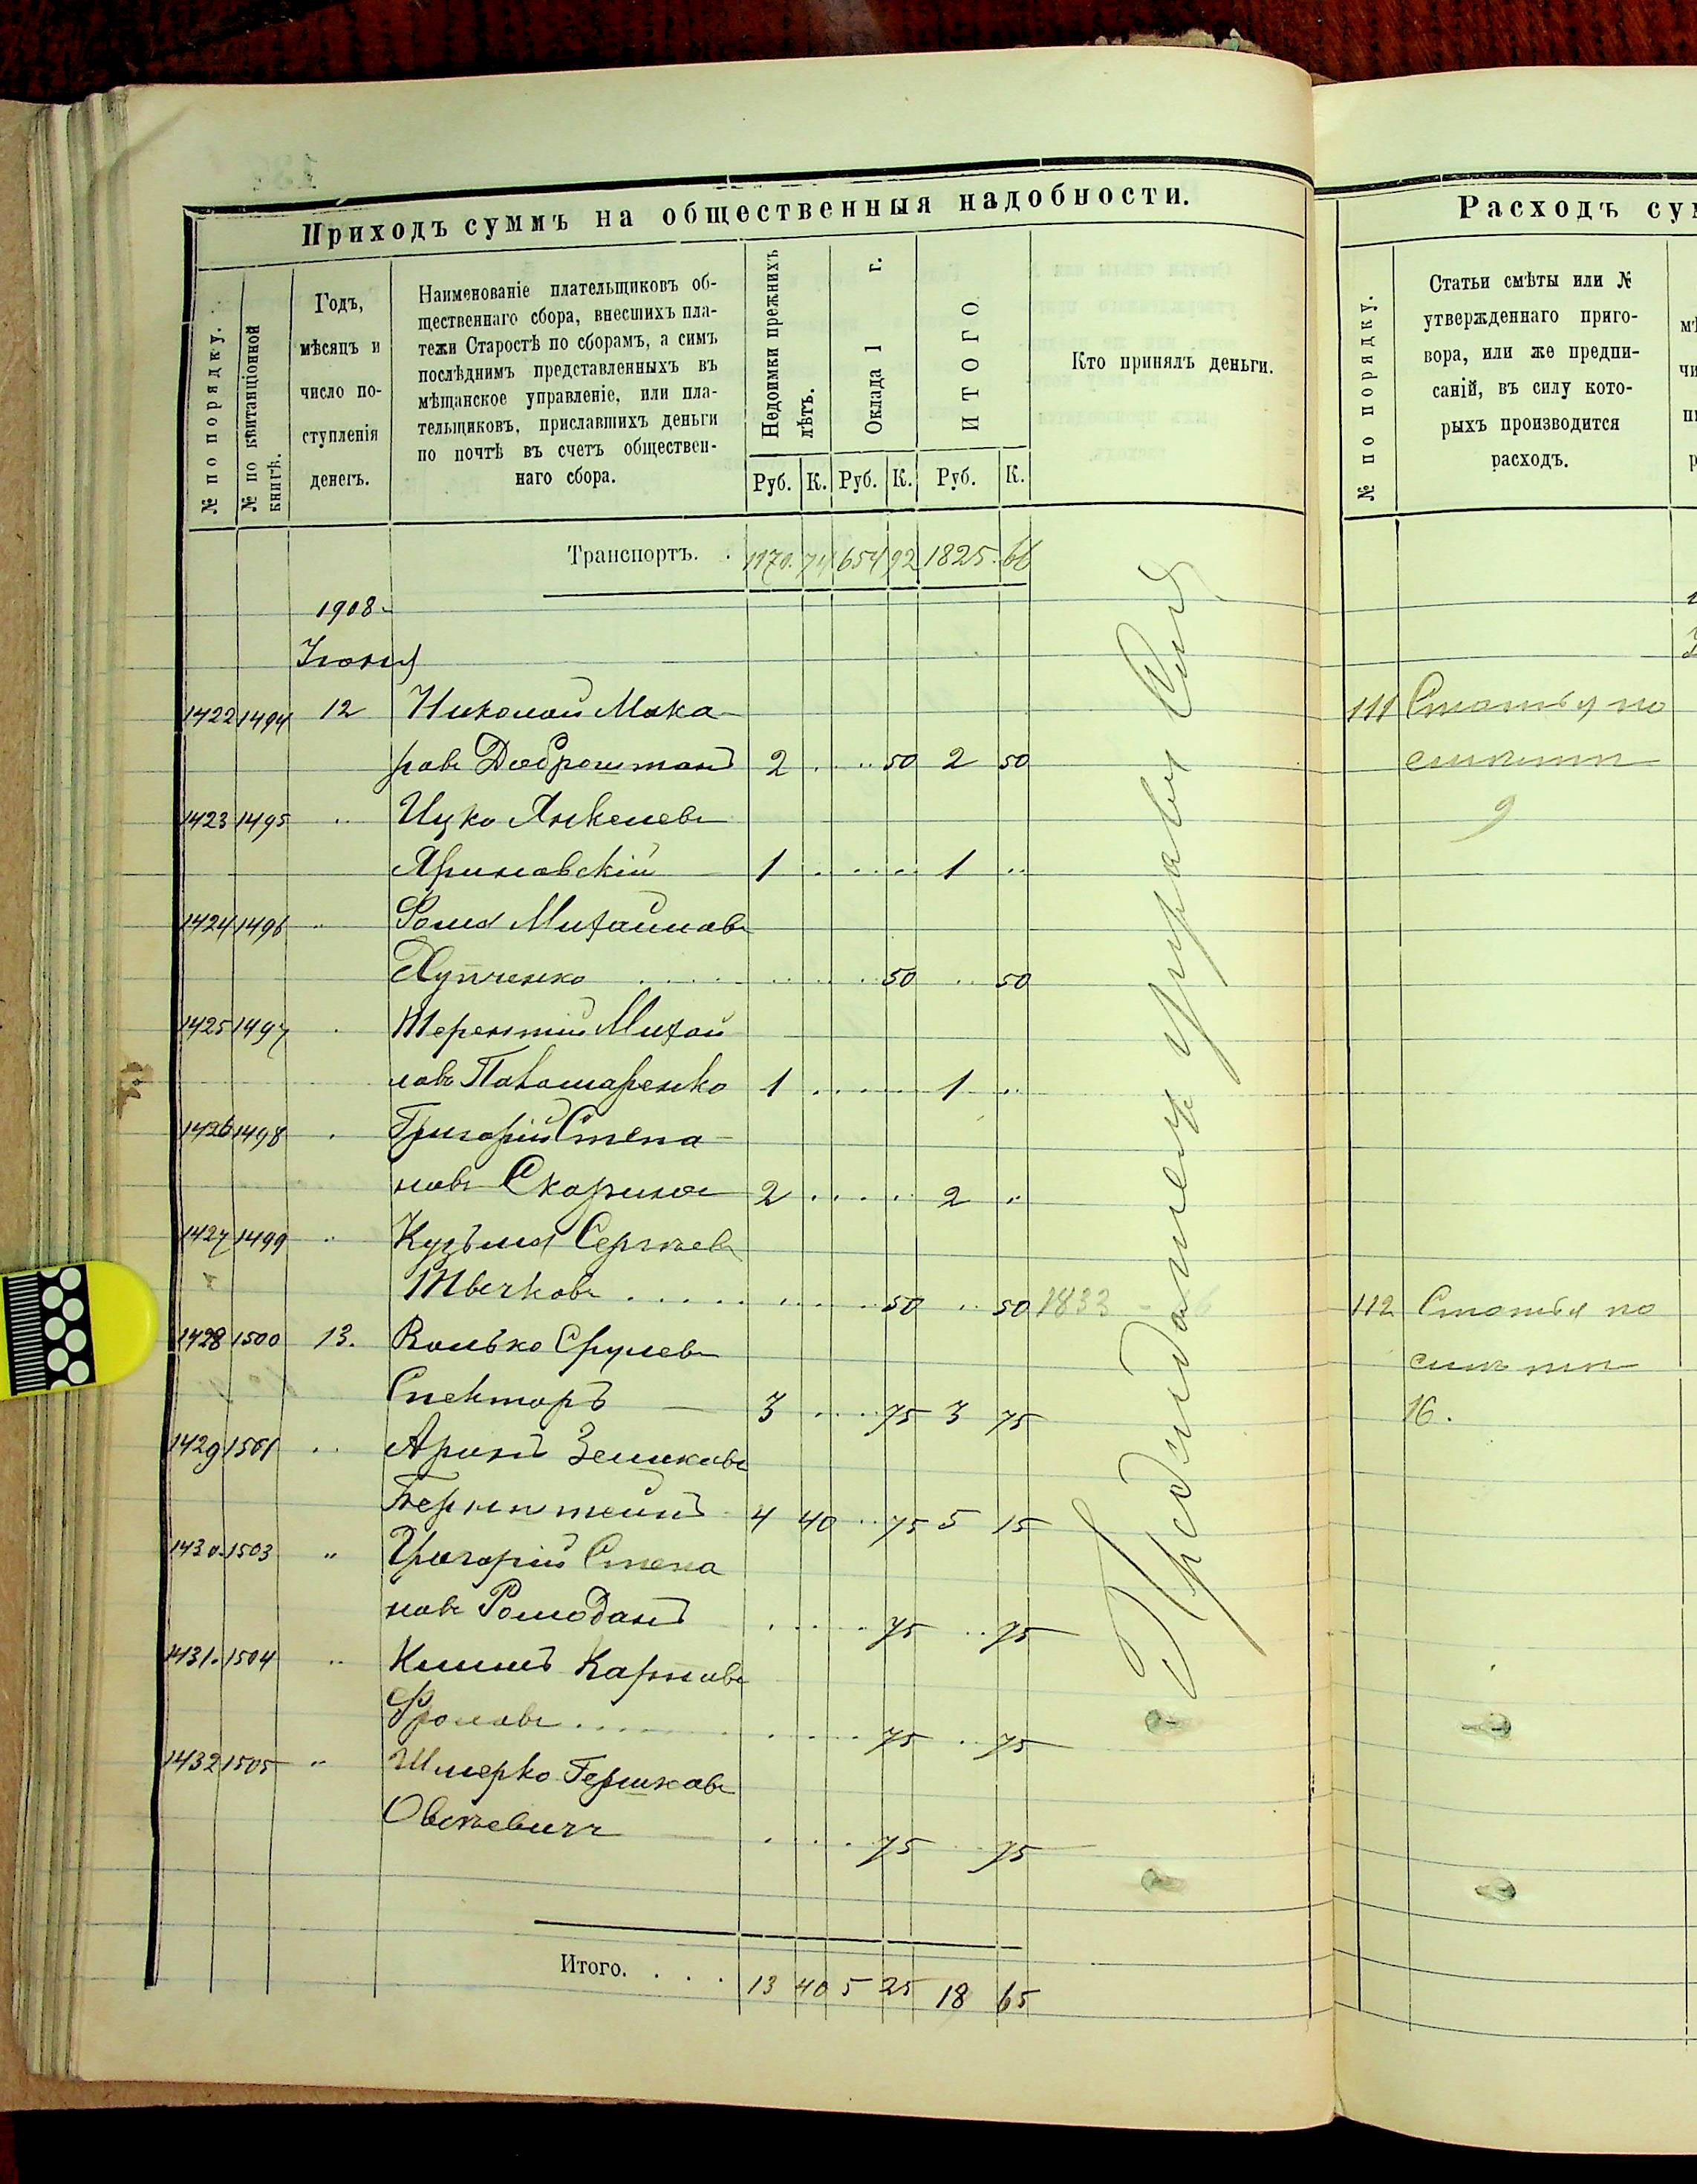 Приходъ суммъ на общественныя надобности.
№ по порядку.
№ по квитанціонной
книгѣ.
Годъ,
мѣсяцъ и
число по-
ступленія
денегъ.
Наименованіе плательщиковъ об-
щественнаго сбора, внесшихъ пла-
тежи Старостѣ по сборамъ, а симъ
послѣднимъ представленныхъ въ
мѣщанское управленіе, или пла-
тельщиковъ, приславшихъ деньги
по почтѣ въ счетъ обществен-
наго сбора.
Недоимки прежнихъ
лѣтъ.
Оклада 1 г.
ИТОГО
Кто принялъ деньги.
Руб. К. Руб. К. Руб. К.
Транспортъ. . 1170. 74 654 92 1825. 66
1908
Іюня
1422 1494 12 Николай Мака-
ровъ Доброштанъ 2 . . .. 50 2 50
1423 1495 .. Ицко Янкелевъ
Яриновскій 1 . . . . . 1 ..
1424 1496 .. Фома Михайловъ
Хупченко . . . . 50 .. 50
1425 1497 . Терентій Михай
ловъ Паламаренко 1 . . . . . 1 ..
1426 1498 . Григорій Степа-
новъ Скорина 2 . . . . . 2 ..
1427 1499 .. Кузьма Сергѣевъ
Твечковъ . . . . . . . . 50 .. 50 1833
1428 1500 13. Волько Срулевъ
Спекторъ — 3 . . . . 75 3 75
1429 1501 .. Аронъ Зеликовъ
Бернштейнъ 4 40 .. 75 5 15
1430. 1503 .. Григорій Степа
новъ Ромоданъ . . . . 75 .. 75
1431. 1504 .. Климъ Карповъ
Фроловъ . . . . . . . . 75 . 75
1432 1505 .. Шмерко Гершковъ
Овсѣевичъ — . . . . 75 75
Итого. . . . 13 40 5 25 18 65
Расходъ су
№ по порядку.
Статьи смѣты или №
утвержденнаго приго-
вора, или же предпи-
саній, въ силу кото-
рыхъ производится
расходъ.
111 Статья по
смѣтѣ
9
112 Статья по
смѣтѣ
16.